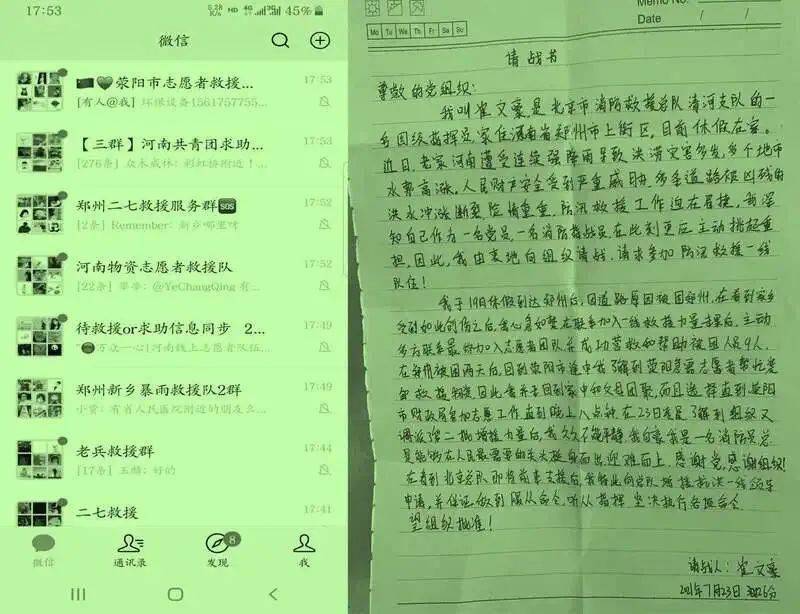 17:53
4G
45%
微信
荥阳市志愿者救援...
17:53
[有人@我] 环保设备1561757755...
【三群】河南共青团求助...
17:53
[276条] 众木成休: 彩虹桥附近!...
郑州二七救援服务群SOS
17:52
[2条] Remember: 新乡哪里呀
河南物资志愿者救援队
17:52
[22条] 翠辛: @YeChangQing 有...
待救援or求助信息同步 2...
17:49
万众一心|河南线上志愿者队伍...
郑州新乡暴雨救援队2群
17:49
小贾: 有省人民医院附近的朋友么...
老兵救援群
17:44
[17条] 玉麟: 好的
二七救援
17:41
微信
通讯录
发现
8
我
Memo No.
Date / /
Mo Tu We Th Fr Sa Su
请战书
尊敬的党组织:
我叫崔文豪,是北京市消防救援总队清河支队的一
名四级指挥员,家住河南省郑州市上街区,目前休假在家。
近日,老家河南遭受连续强降雨导致洪涝灾害多发,多个地市
水势高涨,人民财产安全受到严重威胁,多条道路被凶残的
洪水冲涨断裂,险情重重,防汛救援工作迫在眉睫,我深
知自己作为一名党员,一名消防指战员,在此刻更应主动挑起重
担,因此,我由衷地向组织请战,请求参加防汛救援一线
队伍!
我于19日休假到达郑州后,因道路原因被困郑州,在看到家乡
受到如此创伤之后,我心急如焚在联系加入一线救援力量未果后,主动
多方联系最终加入志愿者团队并成功营救和帮助被困人员9人,
在郑州被困两天后,回到荥阳市途中我了解到荥阳急需志愿者帮忙
救援物资,因此我并未回到家中和父母团聚,而且选择直到荥阳
市财政局参加志愿工作直到晚上八点钟,在23日凌晨了解到组织又
调派第二批增援力量后,我久久不能平静,我自豪我是一名消防员,总
是能够在人民最需要的关头挺身而出,迎难而上,感谢党,感谢组织!
在看到北京总队即将前来支援后,我特此向总队增援抗洪一线领导
申请,并保证做到服从命令,听从指挥,坚决执行各项命令
望组织批准!
请战人:崔文豪
2021年7月23日